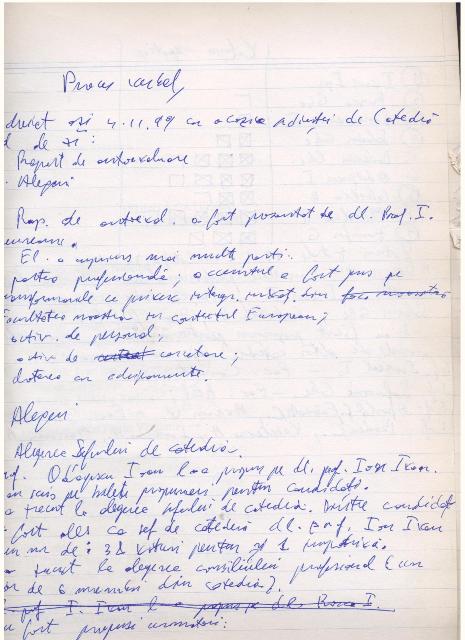 Proces verbal
azi 4.11.99 cu ocazia ședinței de Catedră
de zi:
Raport de autoevaluare
Alegeri
Rap. de autoeval. a fost prezentat de dl. Prof. I.
El a cuprins mai multe părți:
partea profesională; accentul a fost pus pe
ce privesc integr. învăț. din
Facultatea noastră în contextul European;
activ. de personal;
activ. de cercetare;
dotarea cu echipamente.
Alegeri
Alegerea Șefului de catedră.
Ioan l-a propus pe dl. prof. Ioan Ivan.
scris pe bilete propuneri pentru candidați.
a trecut la alegerea șefului de catedră. Dintre candidați
fost ales ca șef de catedră dl. prof. Ion Ivan
nr de: 38 voturi pentru și 1 împotrivă.
trecut la alegerea consiliului profesional (un
de 6 membri din catedră).
prof I. Ivan l-a propus pe dl. I.
fost propuși următorii: